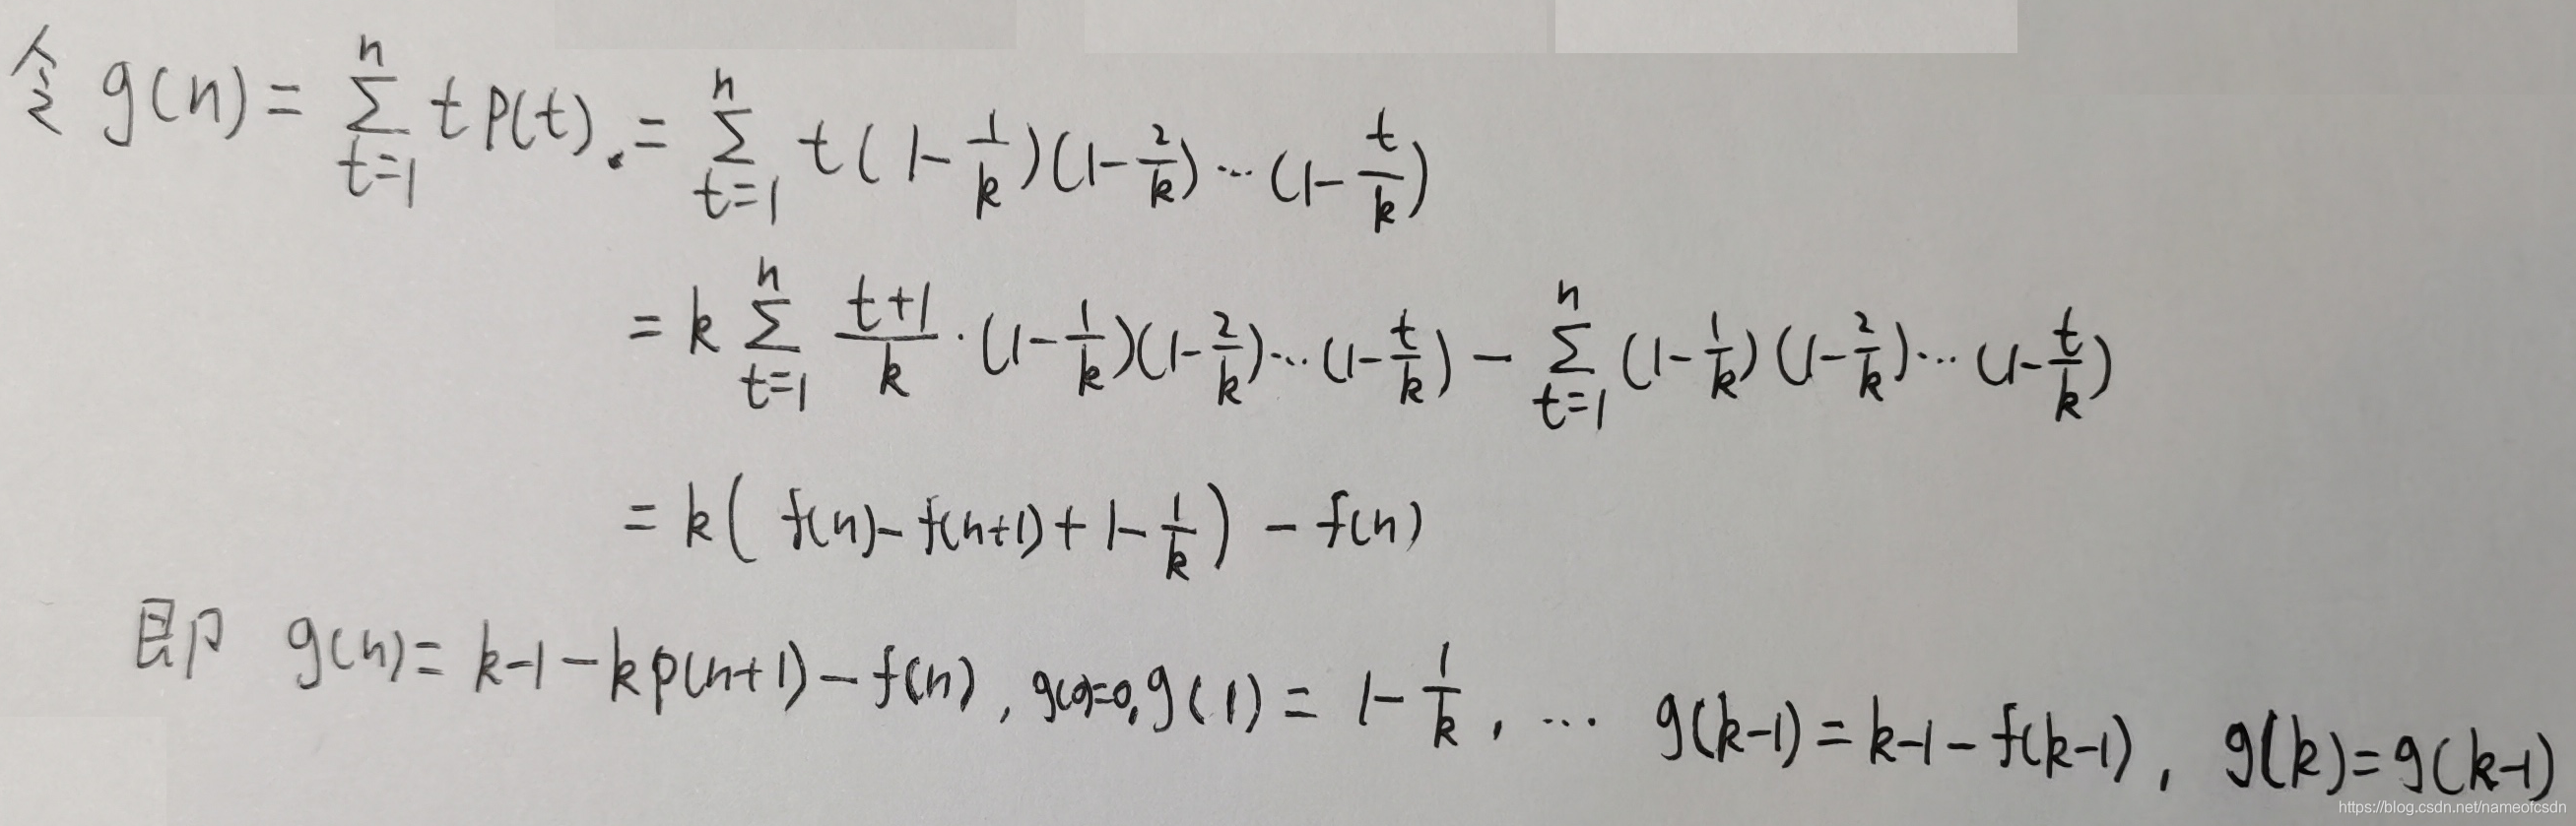 令 g(n) = \sum_{t=1}^{n} t p(t) . = \sum_{t=1}^{n} t (1-\frac{1}{k})(1-\frac{2}{k}) \cdots (1-\frac{t}{k})
= k \sum_{t=1}^{n} \frac{t+1}{k} \cdot (1-\frac{1}{k})(1-\frac{2}{k}) \cdots (1-\frac{t}{k}) - \sum_{t=1}^{n} (1-\frac{1}{k})(1-\frac{2}{k}) \cdots (1-\frac{t}{k})
= k ( f(n) - f(n+1) + 1 - \frac{1}{k} ) - f(n)
即 g(n) = k-1 - k p(n+1) - f(n) , g(0)=0, g(1) = 1 - \frac{1}{k} , \cdots g(k-1) = k-1 - f(k-1) , g(k) = g(k-1)
https://blog.csdn.net/nameofcsdn